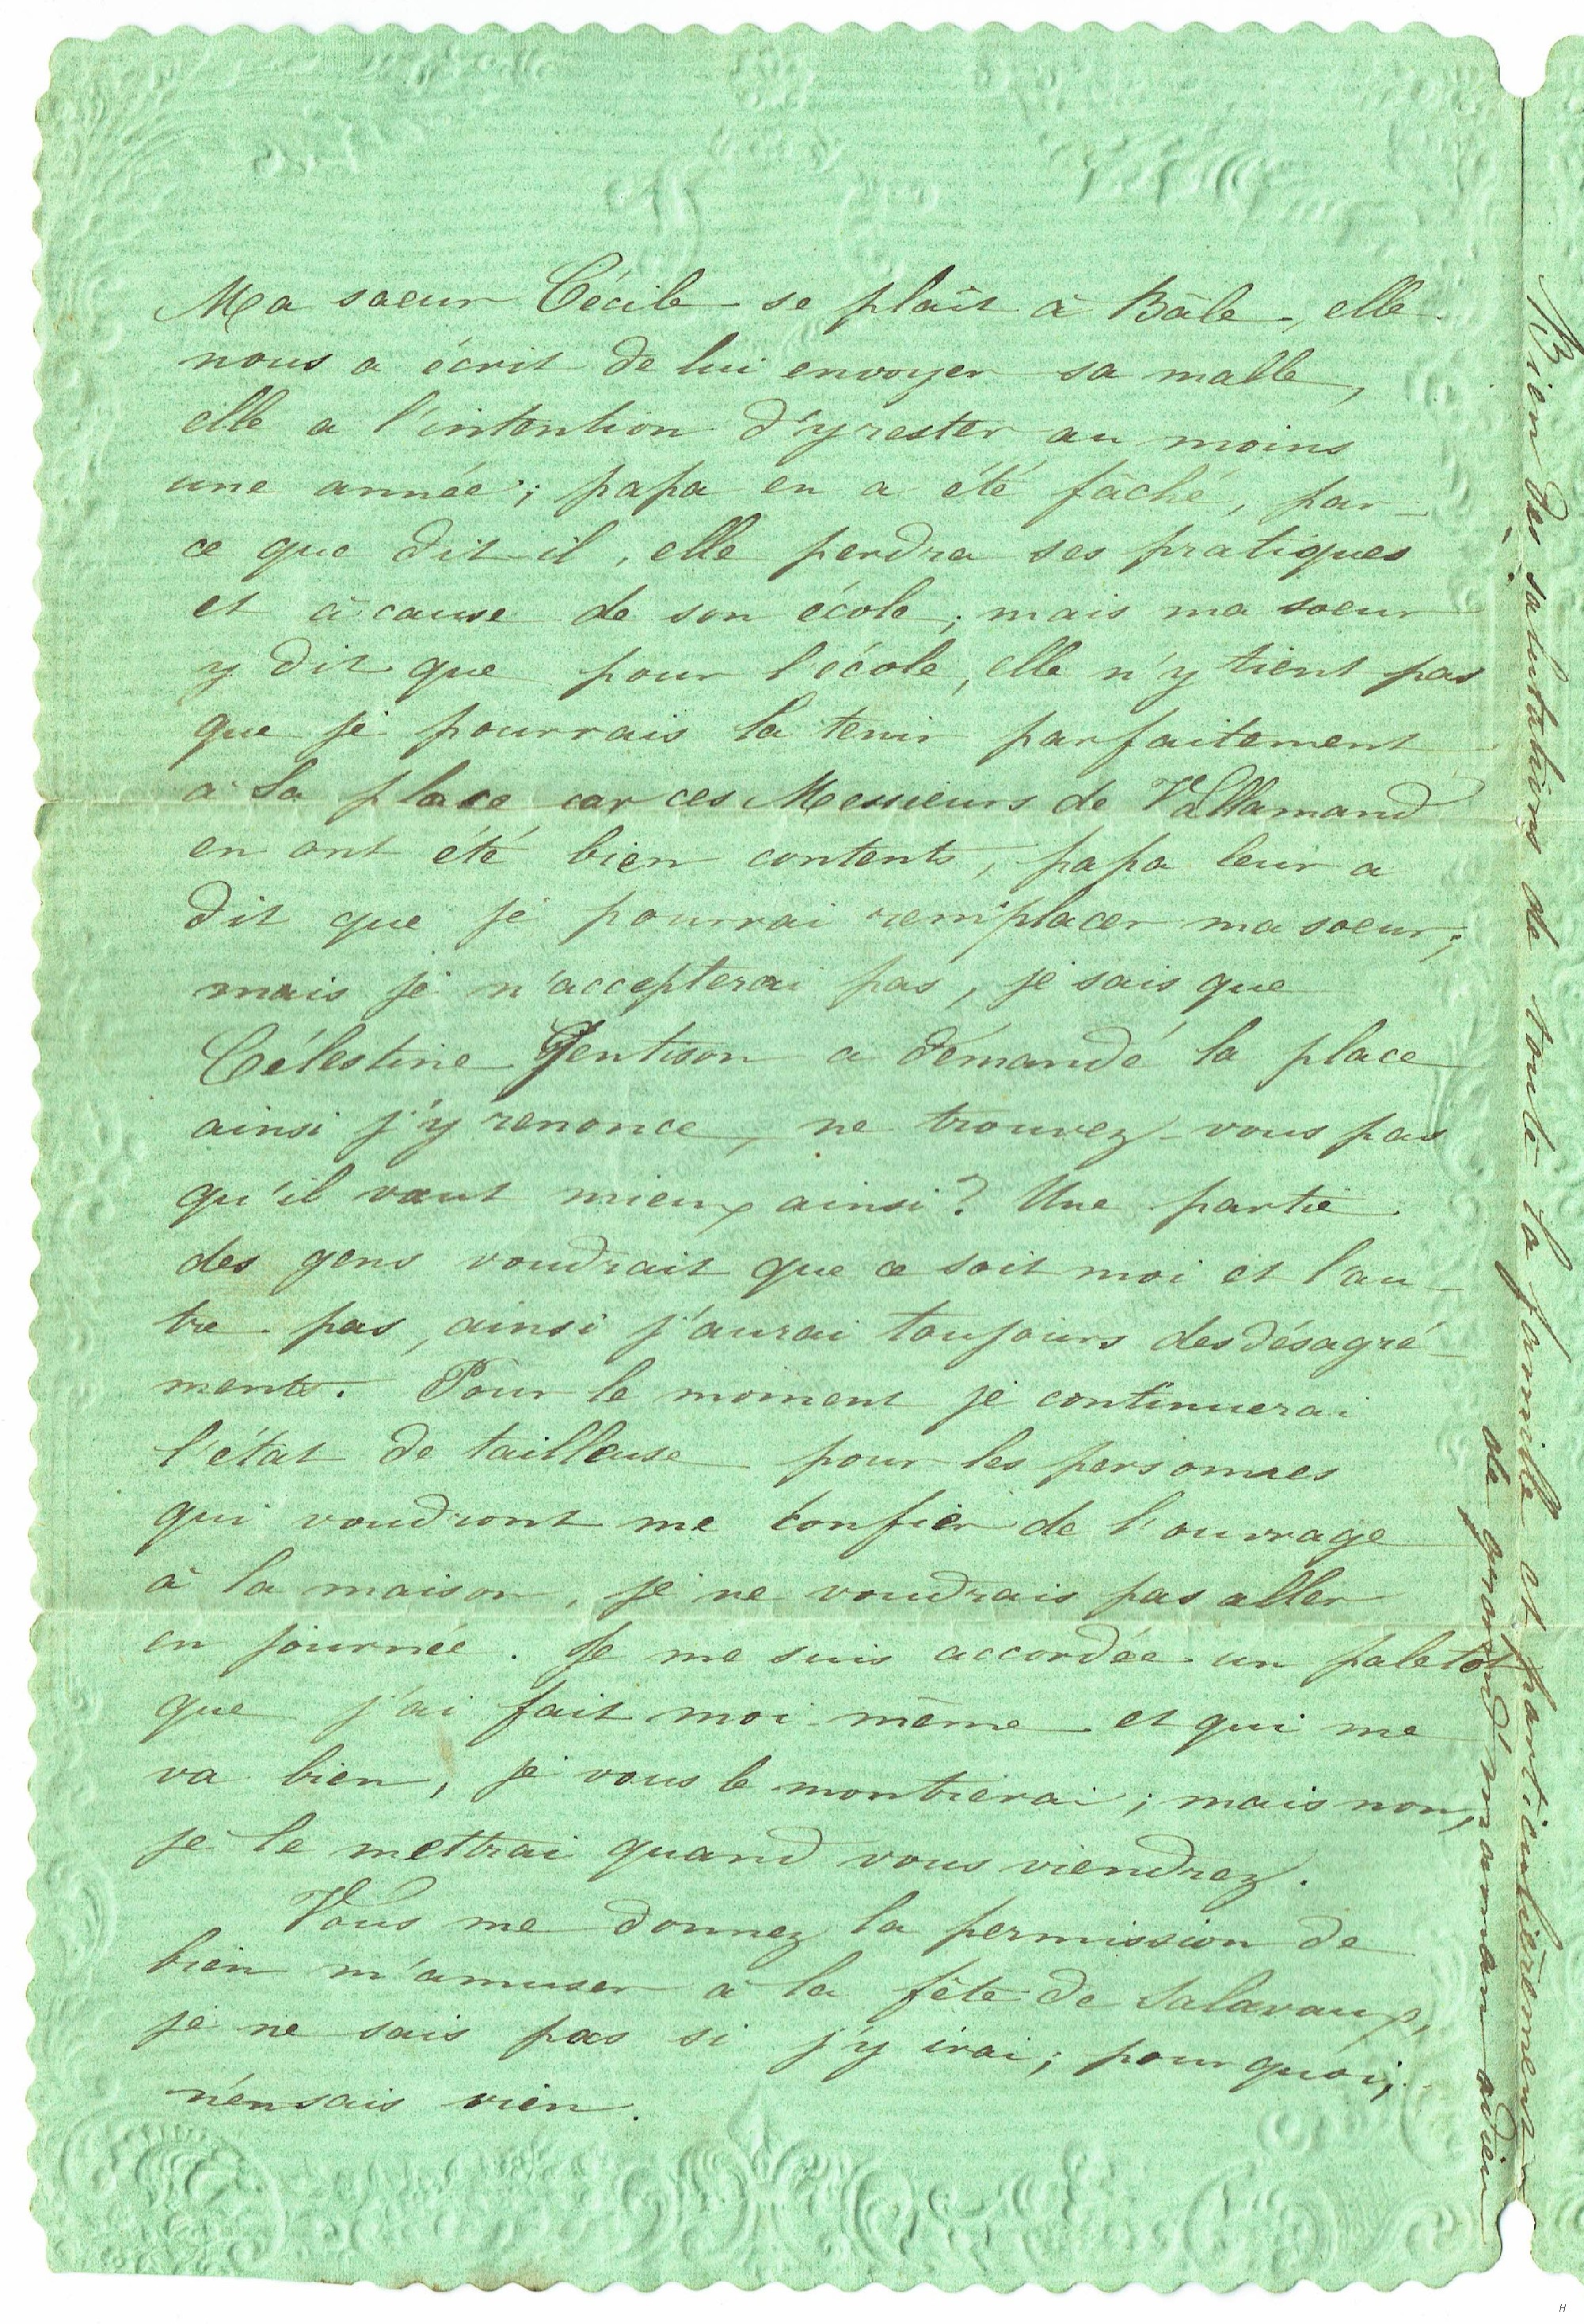 Ma soeur Cécile se plaît à Bâle, elle
nous a écrit de lui envoyer sa malle,
elle a l'intention d'y rester au moins
une année; papa en a été fâché, par-
ce que dit-il, elle perdra ses pratiques
et à cause de son école; mais ma soeur
y dit que pour l'école, elle n'y tient pas
que je pourrais la tenir parfaitement
à sa place car ces Messieurs de Vallamand
en ont été bien contents, papa leur a
dit que je pourrai remplacer ma soeur;
mais je n'accepterai pas, je sais que
Célestine Gentison a demandé la place
ainsi j'y renonce, ne trouvez-vous pas
qu'il vaut mieux ainsi? Une partie
des gens voudrait que ce soit moi et l'au-
tre pas, ainsi j'aurai toujours des désagré-
ments. Pour le moment je continuerai
l'état de tailleuse pour les personnes
qui voudront me confier de l'ouvrage
à la maison, je ne voudrais pas aller
en journée. Je me suis accordée un paletot
que j'ai fait moi-même et qui me
va bien, je vous le montrerai; mais non,
je le mettrai quand vous viendrez.
Vous me donnez la permission de
bien m'amuser à la fête de Salavaux,
je ne sais pas si j'y irai; pourquoi,
n'en sais rien.
Bien des salutations de toute la famille et particulièrement
de grand'maman adieu